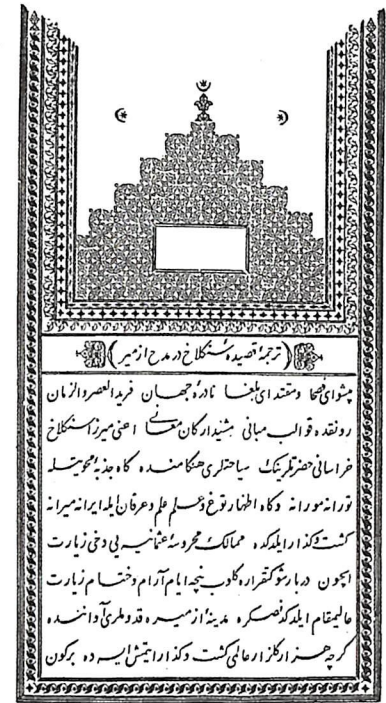 ترجمهٔ قصیدهٔ سنکلاخ در مدح ازمیر
پیشوای فصحا و مقتدای بلغا نادرهٔ جهان فرید العصر والزمان
رونقده قوالب مبانی مشید ارکان معانی اعنی میرزا سنکلاخ
خراسانی حضرتلرینک سیاحتلری هنکامنده کاه جذبهٔ محویتله
تورانه مورانه و کاه اظهار توغ و علم علم و عرفان ایله ایرانه میرانه
کشت و کذار ایلدکده ممالک محروسهٔ عثمانیه یی دخی زیارت
ایچون دربار شوکتقراره کلوب نیچه ایام آرام و ختام زیارت
عالیمقام ایلدکدنصکره مدینهٔ ازمیره قدوملری آواننده
کرچه هزار کلزار عالمی کشت و کذار ایتمش ایسه ده برکون